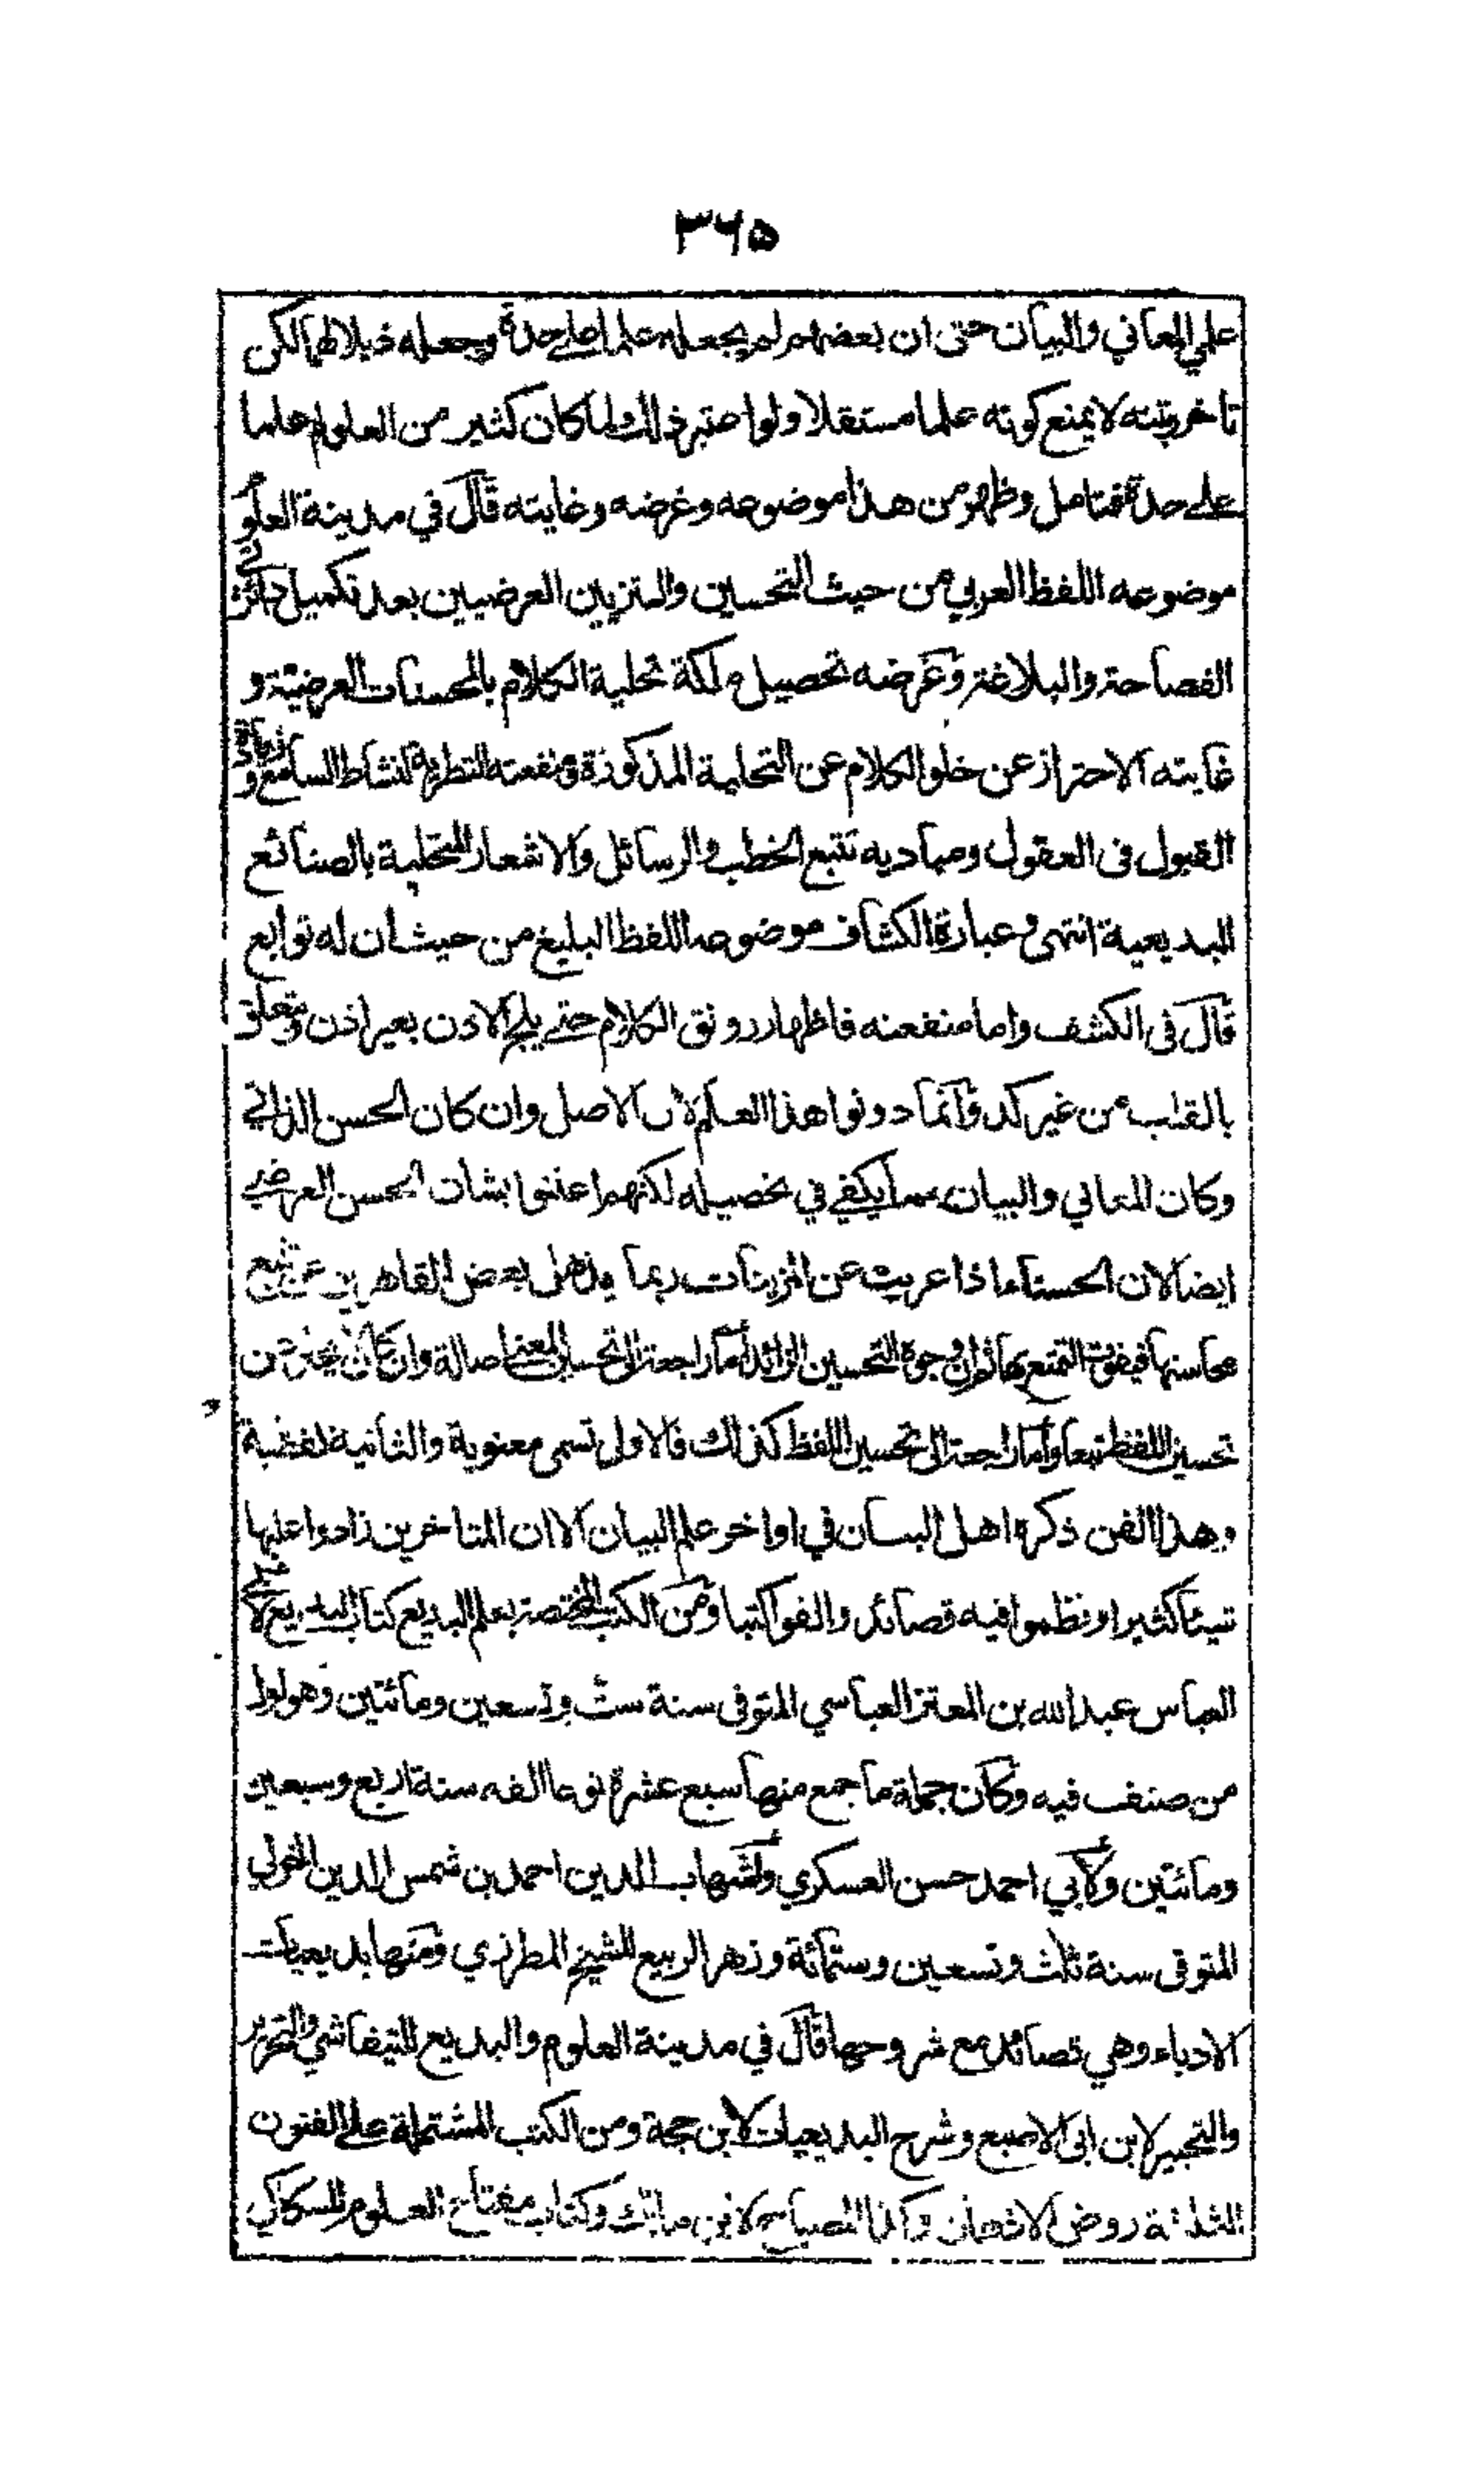 ٣٦٥
علمي المعاني والبيان حتى ان بعضهم لم يجعله علما على حدة وجعله ذيلا لهما لكن
تاخر رتبته لا يمنع كونه علما مستقلا ولو اعتبر ذلك لما كان كثير من العلوم علما
على حدة فتامل وظهر من هذا موضوعه وغرضه وغايته قال في مدينة العلوم
موضوعه اللفظ العربي من حيث التحسين والتزيين العرضيين بعد تكميل دائرتي
الفصاحة والبلاغة وغرضه تحصيل ملكة تحلية الكلام بالمحسنات العرضية و
غايته الاحتراز عن خلو الكلام عن التحلية المذكورة ومنفعته التطرية لنشاط السامع وزيادة
القبول في العقول ومباديه تتبع الخطب والرسائل والاشعار المتحلية بالصنائع
البديعية انتهى وعبارة الكشاف موضوعه اللفظ البليغ من حيث ان له توابع
قال في الكشف واما منفعته فاظهار رونق الكلام حتى يلج الاذن بغير اذن ويتعلق
بالقلب من غير كد وانما دونوا هذا العلم لان الاصل وان كان الحسن الذاتي
وكان المعاني والبيان مما يكفي في تحصيله لكنهم اعتنوا بشان الحسن العرضي
ايضا لان الحسناء اذا عريت عن المزينات ربما يذهل بعض القاهرين عن تتبع
محاسنها فيفوت التمتع بها ثم ان وجوه التحسين الزائد اما راجعة الى تحسين المعنى اصالة وان كان لا يخلو عن
تحسين اللفظ تبعا واما راجعة الى تحسين اللفظ كذلك فالاول تسمى معنوية والثانية لفظية
وهذا الفن ذكره اهل البيان في اواخر علم البيان الا ان المتاخرين زادوا عليها
شيئا كثيرا ونظموا فيه قصائد والفوا كتبا ومن الكتب المختصة بعلم البديع كتاب البديع لابي
العباس عبد الله بن المعتز العباسي المتوفى سنة ست وتسعين ومائتين وهو اول
من صنف فيه وكان جملة ما جمع منها سبع عشرة نوعا الفه سنة اربع وسبعين
ومائتين ولابي احمد حسن العسكري ولشهاب الدين احمد بن شمس الدين الخولي
المتوفى سنة ثلث وتسعين وستمائة وزهر الربيع للشيخ المطرزي ومنها بديعيات
الادباء وهي قصائد مع شروحها قال في مدينة العلوم والبديع للتيفاشي والتحرير
والتحبير لابن ابى الاصبع وشرح البديعيات لابن حجة ومن الكتب المشتملة على الفنون
الثلثة روض الاذهان وكذا المصباح لابن مالك وكتاب مفتاح العلوم للسكاكي